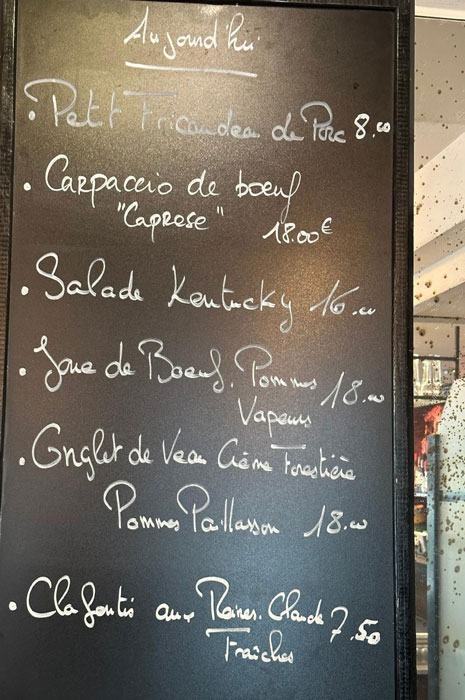 Aujourd'hui
• Petit Fricandeau de Porc 8.00
• Carpaccio de boeuf
"Caprese" 18.00€
• Salade Kentucky 16.00
• Joue de Boeuf. Pommes 18.00
Vapeurs
• Onglet de Veau Crème Forestière
Pommes Paillasson 18.00
• Clafoutis aux Reines. Claude 7.50
Fraîches